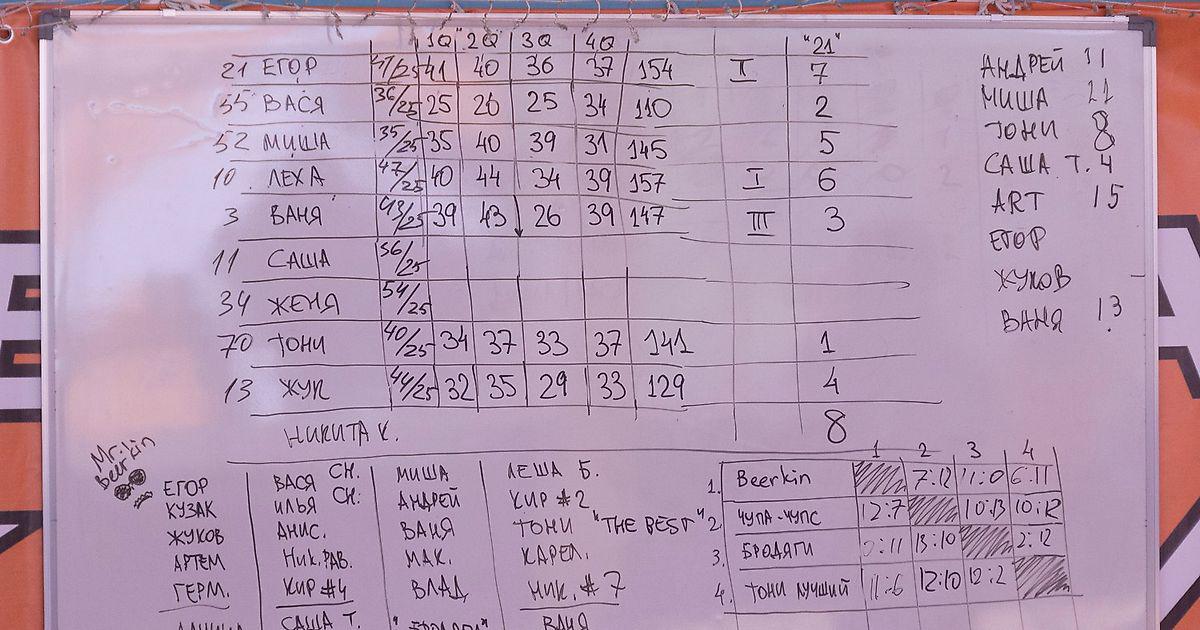 1Q 2Q 3Q 4Q "21"
21 ЕГОР 47/25 41 40 36 37 154 II 7
55 ВАСЯ 36/25 25 26 25 34 110 2
52 МИША 35/25 35 40 39 31 145 5
10 ЛЕХА 47/25 40 44 34 39 157 I 6
3 ВАНЯ 43/25 39 43 26 39 147 III 3
11 САША 56/25
34 ЖЕНЯ 54/25
70 ТОНИ 40/25 34 37 33 37 141 1
13 ЖУК 44/25 32 35 29 33 129 4
НИКИТА К. 8
АНДРЕЙ 11
МИША 21
ТОНИ 8
САША Т. 4
ART 15
ЕГОР
ЖУКОВ
ВАНЯ 13
Mr.kin
Beerkin
ЕГОР ВАСЯ СН. МИША ЛЕША Б.
КУЗАК ИЛЬЯ СН. АНДРЕЙ КИР #2
ЖУКОВ АНИС. ВАНЯ ТОНИ "THE BEST"
АРТЕМ НИК.РАВ. МАК. КАРЕЛ.
ГЕРМ. КИР #4 ВЛАД НИК. #7
САША Т. "БРОДЯГИ" ВАНЯ
1 2 3 4
1. Beerkin 7:12 11:0 6:11
2. ЧУПА-ЧУПС 12:7 10:13 10:12
3. БРОДЯГИ 0:11 13:10 2:12
4. ТОНИ ЛУЧШИЙ 11:6 12:10 12:2